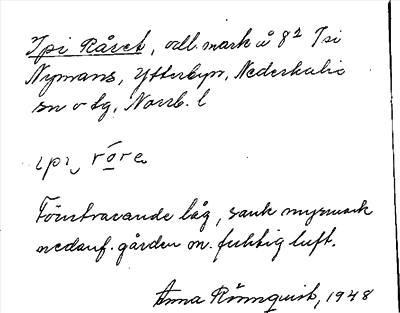 Ipi Råret, odl. mark å 8² Isi
Nymans, Ytterbyn, Nederkalix
sn o tg, Norrb. l
ɩpɩ røre
Förutvarande låg, sank myrmark
nedanf. gården m. fuktig luft.
Anna Rönnquist, 1948